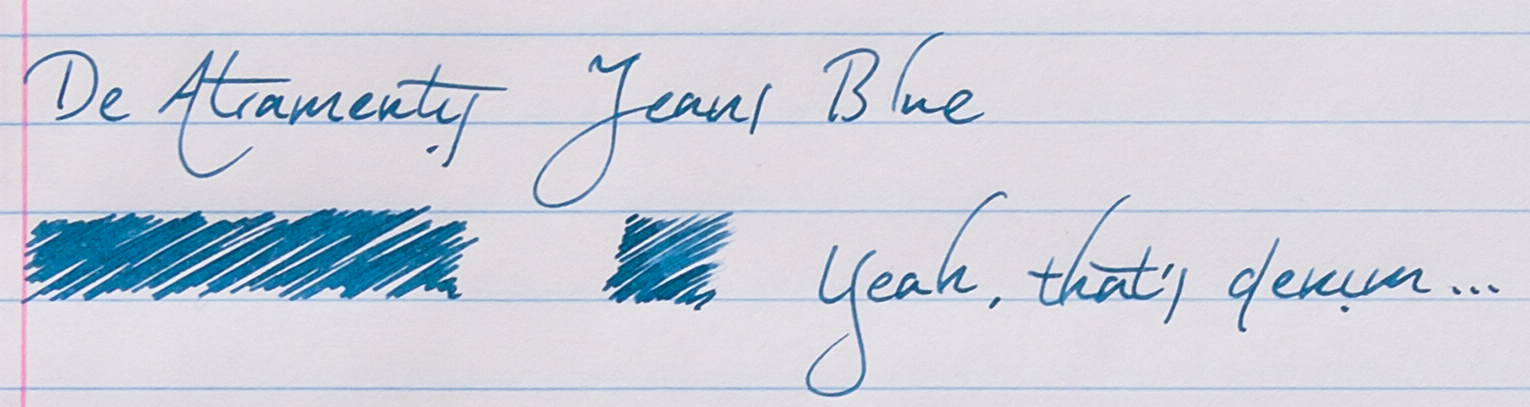 De Atramentis Jeans Blue
Yeah, that's denim...